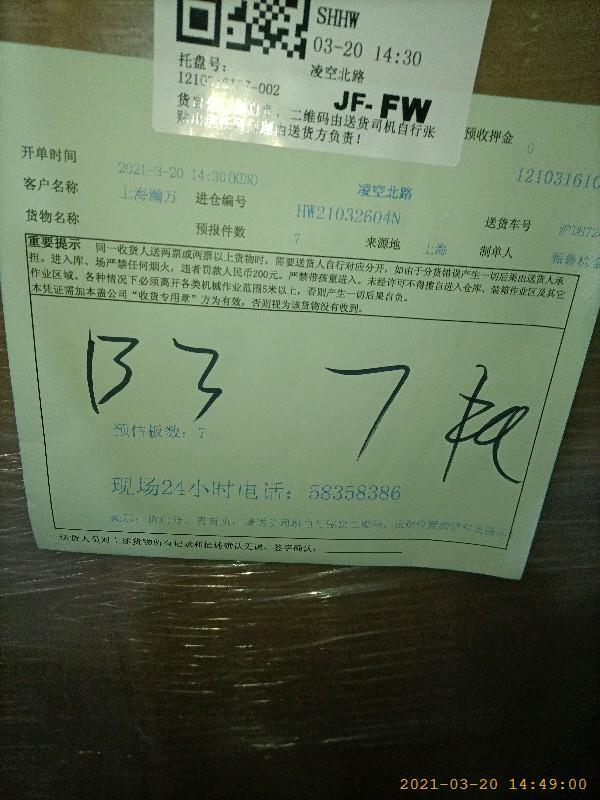 SHHW
03-20 14:30
托盘号:
凌空北路
-002
JF-FW
二维码由送货司机自行张
由送货方负责!
预收押金 0
开单时间
2021-3-20 14:30(KDR)
凌空北路
121031610
客户名称 上海瀚万 进仓编号 HW21032604N 送货车号
货物名称 预报件数 7 来源地 上海 制单人
重要提示 同一收货人送两票或两票以上货物时,需要送货人自行对应分开,如由于分货错误产生一切后果由送货人承
担。进入库、场严禁任何烟火,违者罚款人民币200元。严禁带孩童进入。未经许可不得擅自进入仓库、装箱作业区及其它
作业区域。各种情况下必须离开各类机械作业范围5米以上,否则产生一切后果自负。
本凭证需加本盖公司“收货专用章”方为有效,否则视为该货物没有收到。
B3 7托
预估板数:7
现场24小时电话:58358386
送货人员对上述货物所有记录和描述确认无误,签字确认:
2021-03-20 14:49:00